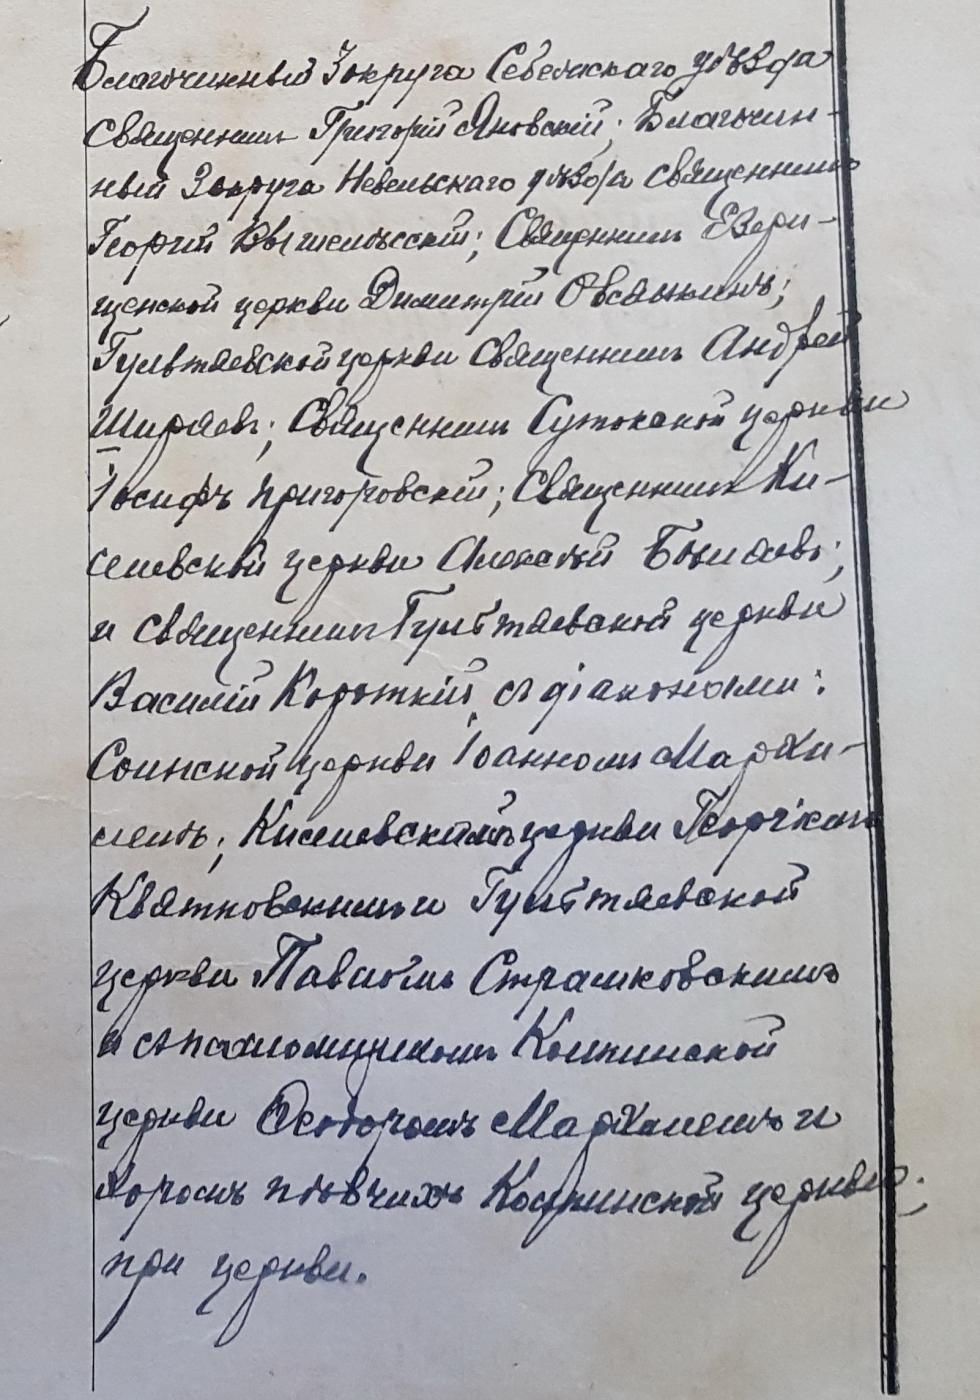 Благочинный 3 округа Себежскаго уѣзда
Священникъ Григорій Яновскій; Благочин-
ный 3 округа Невельскаго уѣзда священникъ
Георгій; Священникъ Езери-
щенской церкви Димитрій Овсянкинъ;
Гультяевской церкви священникъ Андрей
Ширяевъ; Священникъ Сутокской церкви
Іосифъ Григоровскій; Священникъ Ки-
селевской церкви Алексѣй;
и священникъ Гультяевской церкви
Василій Короткій, съ діаконами:
Соинской церкви Іоанномъ
Киселевской церкви Георгіемъ
Квятковскимъ и Гультяевской
церкви Павломъ Страшковскимъ
и съ псаломщикомъ
церкви Ѳеодоромъ и
хоромъ пѣвчихъ церкви;
при церкви.